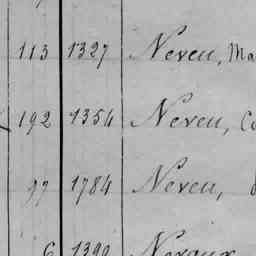 113 1327 Neveu, Ma
192 1354 Neveu, Co
97 1784 Neveu,
6 1390